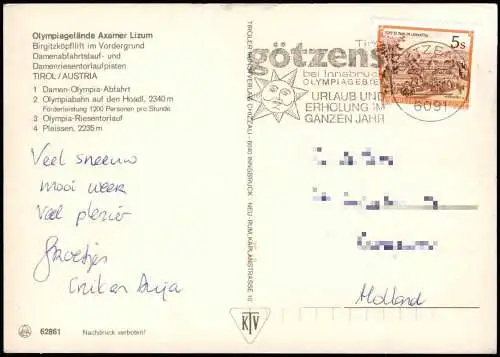 Olympiagelände Axamer Lizum
Birgitzköpfllift im Vordergrund
Damenabfahrtslauf- und
Damenriesentorlaufpisten
TIROL/AUSTRIA
1 Damen-Olympia-Abfahrt
2 Olympiabahn auf den Hoadl, 2340 m
Förderleistung 1200 Personen pro Stunde
3 Olympia-Riesentorlauf
4 Pleissen, 2235 m
Veel sneeuw
mooi weer
Veel plezier
Groetjes
62861
Nachdruck verboten!
KTV
götzens
bei Innsbruck
OLYMPIAGEBIET
URLAUB UND
ERHOLUNG IM
GANZEN JAHR
5s
6091
Holland